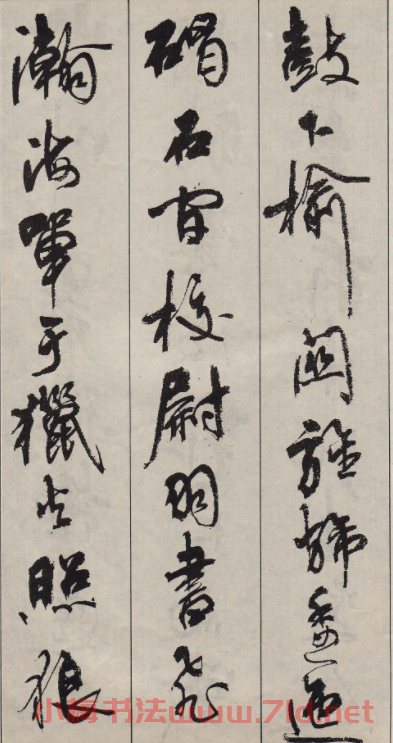 鼓下榆關旌旆逶迤
碣石間校尉羽書飛
瀚海單于獵火照狼
书法www.7ld.net